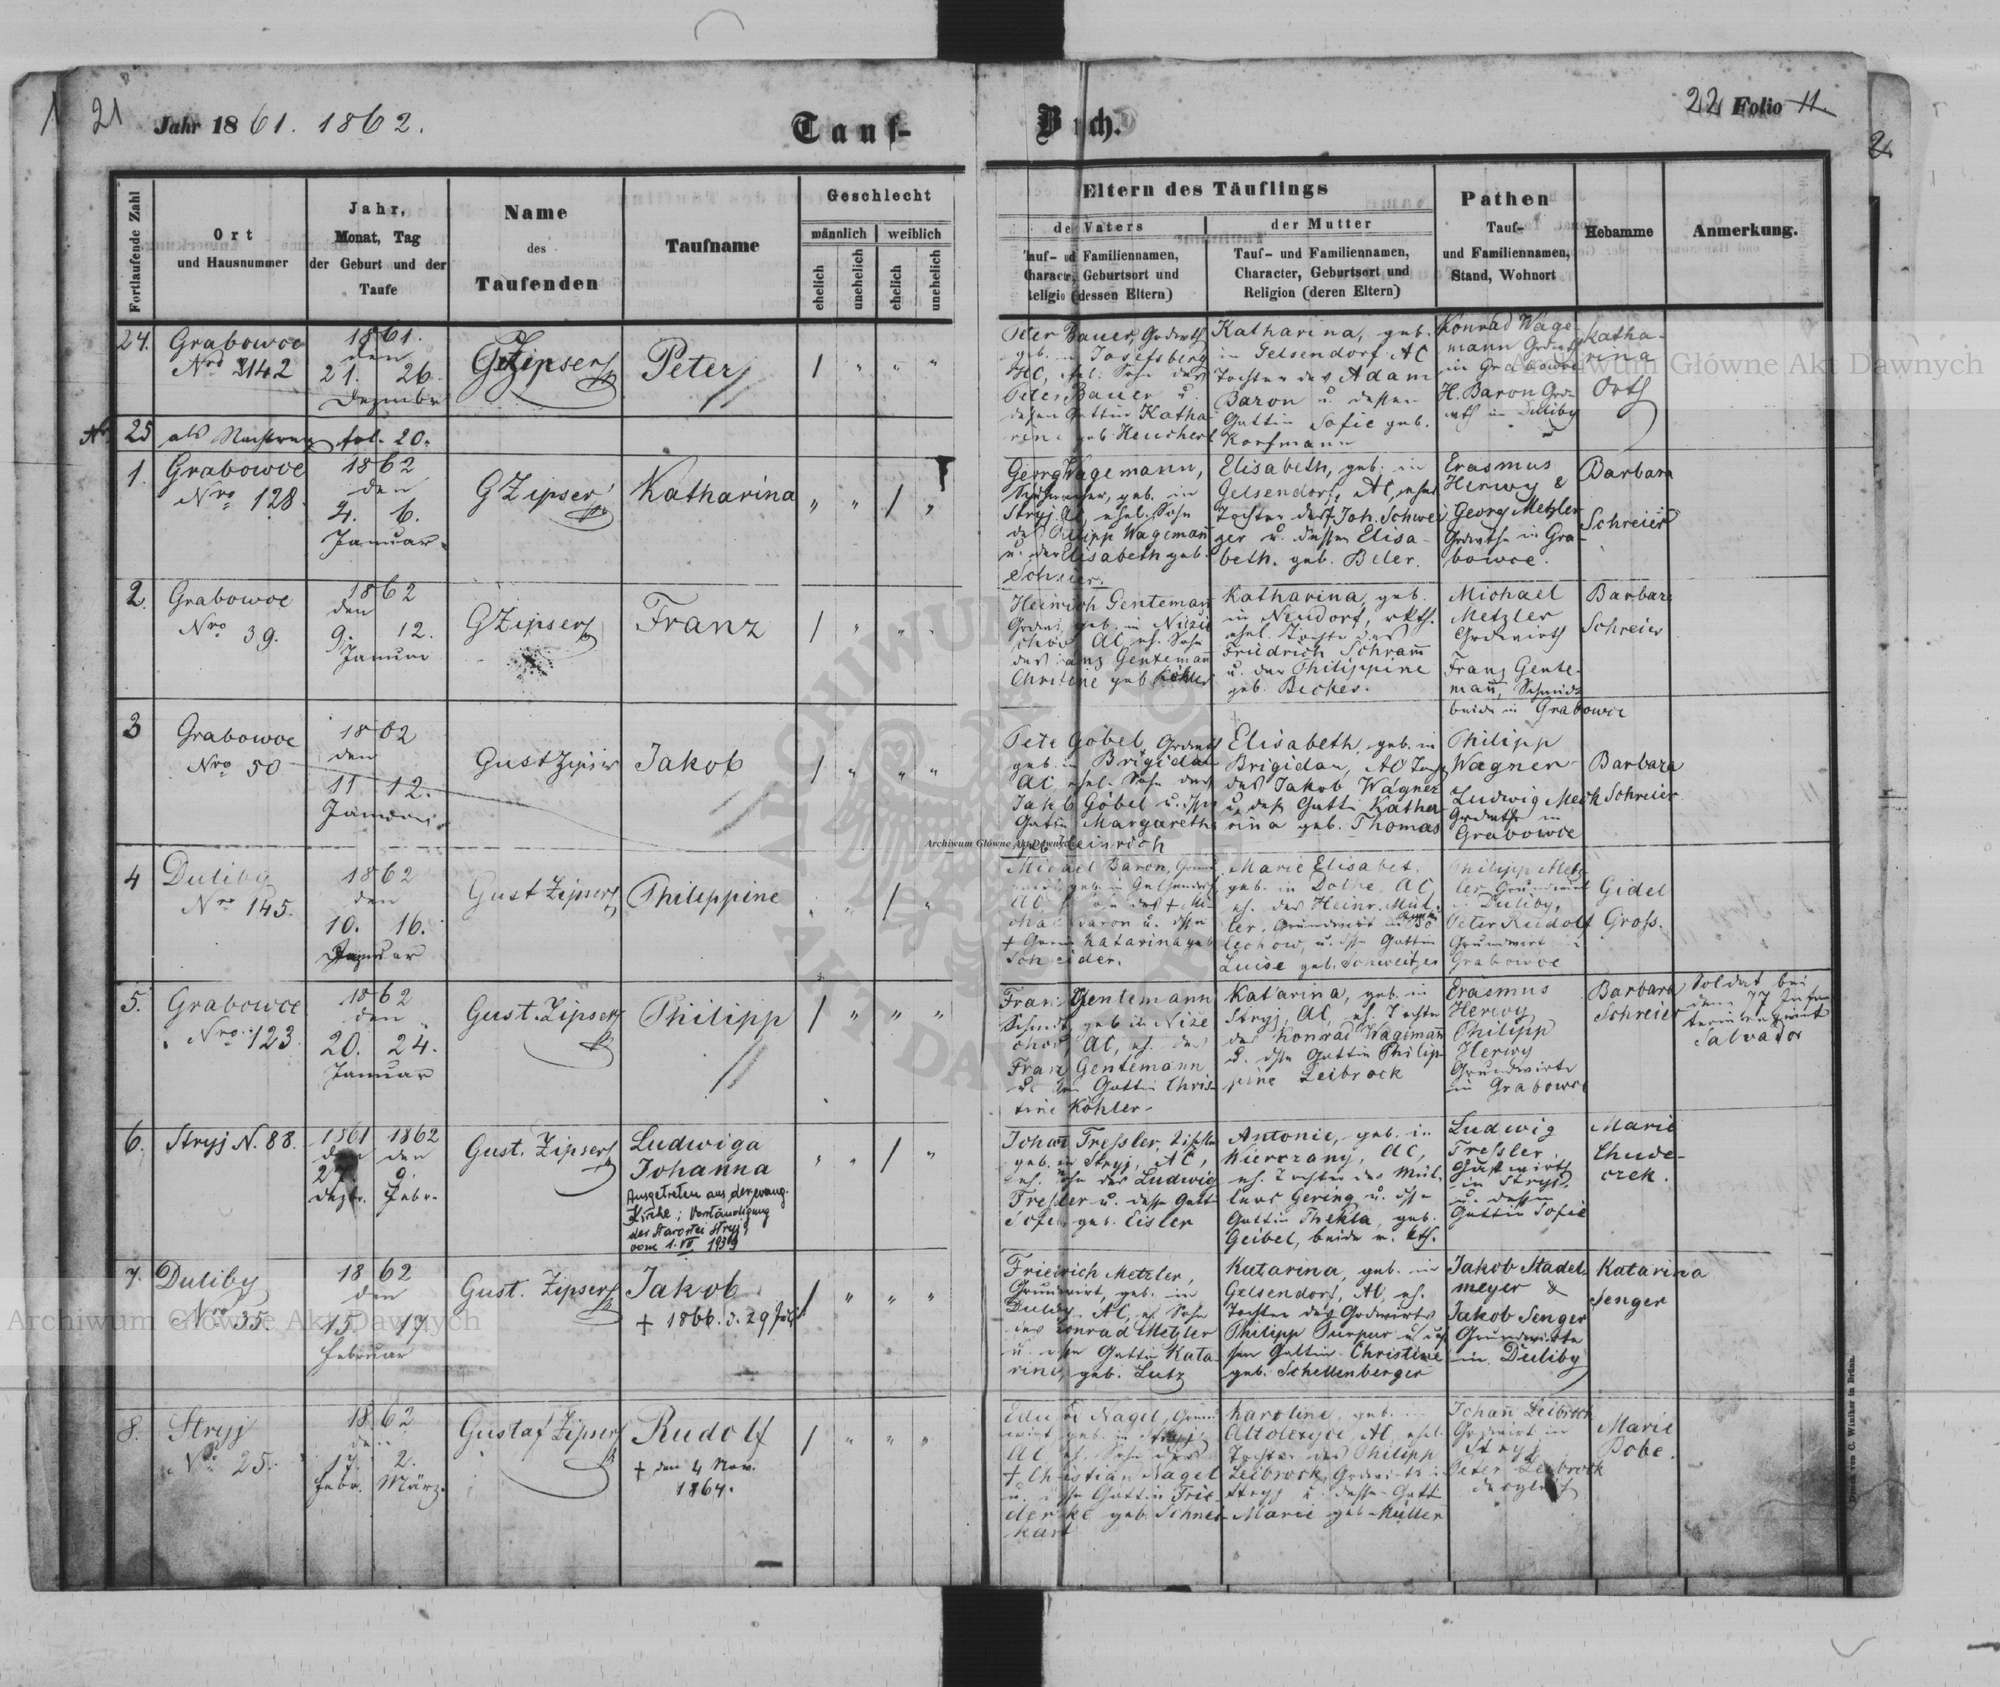 21 Jahr 1861. 1862. Tauf-Buch. 22 Folio 11.
Fortlaufende Zahl
Ort
und Hausnummer
Jahr,
Monat, Tag
der Geburt und der
Taufe
Name
des
Taufenden
Taufname
Geschlecht
männlich weiblich
ehelich unehelich ehelich unehelich
Eltern des Täuflings
des Vaters
Tauf- und Familiennamen,
Character, Geburtsort und
Religion (dessen Eltern)
der Mutter
Tauf- und Familiennamen,
Character, Geburtsort und
Religion (deren Eltern)
Pathen
Tauf-
und Familiennamen,
Stand, Wohnort
Hebamme
Anmerkung.
24.
Grabowce
Nro 142
1861.
den
21. 26.
Dezember
GZipser
Peter
Peter Bauer, Grdwrth
geb. in Josefsberg
AC, ehel. Sohn des
Peter Bauer u.
dessen Gattin Katha-
rina geb Heuchert
Katharina, geb.
in Gelsendorf AC
Tochter des Adam
Baron u. dessen
Gattin Sofie geb.
Korfmann
Konrad Wage-
mann Grdwrth
in Grabowce
H. Baron Grd-
wrth in Duliby
Katha-
rina
Orth
25 als Nachtrag fol. 20.
1.
Grabowce
Nro 128.
1862
den
4. 6.
Januar.
GZipser
Katharina
Georg Wagemann,
geb. in
Stryj AC, ehel. Sohn
des Philipp Wagemann
u. der Elisabeth geb.
Schreier.
Elisabeth, geb. in
Gelsendorf, AC, ehel
Tochter des Joh. Schwei
ger u. dessen Elisa-
beth. geb. Beler.
Erasmus
Herwy &
Georg Metzler
Grdwrthe in Gra-
bowce.
Barbara
Schreier
2.
Grabowce
Nro 39.
1862
den
9. 12.
Januar
GZipser
Franz
Heinrich Gentemann
geb. in Nizie
chow AC, eh. Sohn
des Franz Gentemann
Christine geb Köhler
Katharina, geb.
in Neudorf, rkth.
ehel. Tochter des
Friedrich Schramm
u. der Philippine
geb. Becker.
Michael
Metzler
Grdwirth
Franz Gente-
mann, Schmidt
beide in Grabowce
Barbara
Schreier
3
Grabowce
Nro 50
1862
den
11 12.
Januar.
Gust Zipser
Jakob
Peter Göbel, Grdwrth
geb. in Brigidau
AC ehel. Sohn des
Jakob Göbel u. dssn
Gattin Margaretha
geb. Heinrich
Elisabeth, geb. in
Brigidau, AC Tochter
des Jakob Wagner
u. dess Gattin Katha-
rina geb. Thomas
Philipp
Wagner
Ludwig Mech
Grdwrthe in
Grabowce
Barbara
Schreier
4
Duliby
Nro 145.
1862
den
10. 16.
Januar
Gust Zipser
Philippine
Michael Baron, Grund
wirt, geb. in Gelsendorf
AC Sohn des † Mi-
chael Baron u. dssn
† Gattin Katarina geb
Schneider.
Marie Elisabet,
geb. in Dolhe, AC,
eh. des Heinr. Mül-
ler, Grundwirt in Bo
lechow, u. dssn Gattin
Luise geb. Schweitzer
Philipp Metz-
ler Grundwirt
in Duliby,
Peter Rudolf
Grundwirt in
Grabowce
Gidel
Gross.
5.
Grabowce
Nro. 123.
1862
den
20. 24.
Januar
Gust. Zipser
Philipp
Franz Gentemann
Schmidt, geb in Nize
chow, AC, eh. des
Franz Gentemann
u. dssn Gattin Chris-
tine Köhler-
Katarina, geb. in
Stryj, AC, eh. Tochter
des Konrad Wagemann
u. dssn Gattin Philip-
pine Leibrock
Erasmus
Herwy
Philipp
Herwy
Grundwirte
in Grabowce
Barbara
Schreier
Soldat bei
dem 77 Infan
terieregiment
Salvator
6.
Stryj N. 88.
1861 1862
den den
27 9.
Dezbr. Febr.
Gust. Zipser
Ludwiga
Johanna
Ausgetreten aus der evang.
Kirche; Verständigung
der Starostei Stryj
vom 1. VII 1939
Johann Tressler, Tischler
geb. in Stryj, AC,
eh. Sohn des Ludwig
Tressler u. dessn Gatt
Sofie geb. Eisler
Antonie, geb. in
Wierczany, AC,
eh. Tochter des Mül-
lers Gering u. dssn
Gattin Thekla, geb.
Geibel, beide r. kth.
Ludwig
Tressler
Gastwirth
in Stryj,
u. dessen
Gattin Sofie
Marie
Chude-
czek.
7.
Duliby
Nro 35.
1862
den
15. 17
Februar
Gust. Zipser
Jakob
† 1866. d. 29 Juli
Friedrich Metzler,
Grundwirt, geb. in
Duliby AC, eh Sohn
des Konrad Metzler
u. dssn Gattin Kata-
rina, geb. Lutz
Katarina, geb. in
Gelsendorf, AC, eh.
Tochter des Grdwirts
Philipp Purpur u. des
sen Gattin Christine
geb. Schellenberger
Jakob Stadel-
meyer &
Jakob Senger
Grundwirte
in Duliby
Katarina
Senger
8.
Stryj
Nro 25.
1862
den
17. 2.
Febr. März.
Gustaf Zipser
Rudolf
† den 4 Nov.
1864.
Eduard Nagel, Grund
wirt geb. in Stryj
AC eh. Sohn des
† Christian Nagel
u. dssn Gattin Frie-
derike geb. Schnei-
kart
Karoline, geb. in
AC, ehel.
Tochter des Philipp
Leibrock, Grdwirts in
Stryj u. dessn Gatt
Marie geb. Müller
Johann Leibrock
Grdwirt in
Stryj
Peter Leibrock
dergleich
Marie
Pobe.
Druck von C. Winiker in Brünn.
Archiwum Główne Akt Dawnych
Archiwum Główne Akt Dawnych
Archiwum Główne Akt Dawnych
ARCHIWUM GŁÓWNE AKT DAWNYCH